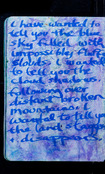 I have wanted to
tell you the blue
sky filled with
impossible
I wanted
to tell you the
following over
distant broken
mountains. I
wanted to tell you
the land's
disappears